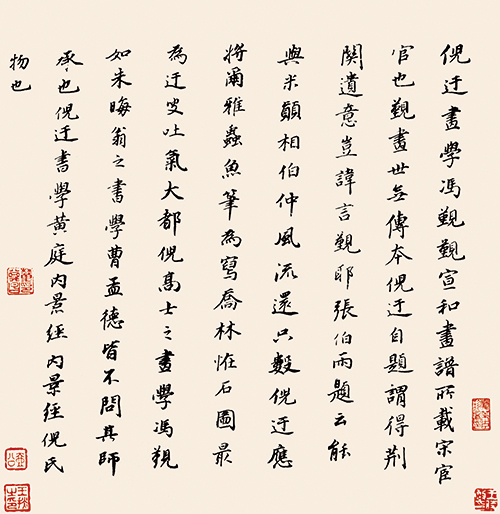 倪迂畫學馮覲覲宣和畫譜所載宋宦
官也覲畫世無傳本倪迂自題謂得荆
関遺意豈諱言覲耶張伯雨題云能
與米顛相伯仲風流還只數倪迂應
將爾雅蟲魚筆為寫喬林恠石圖最
為迂叟吐氣大都倪高士之畫學馮覲
如朱晦翁之書學曹孟德皆不問其師
承也倪迂書學黄庭内景經内景經倪氏
物也